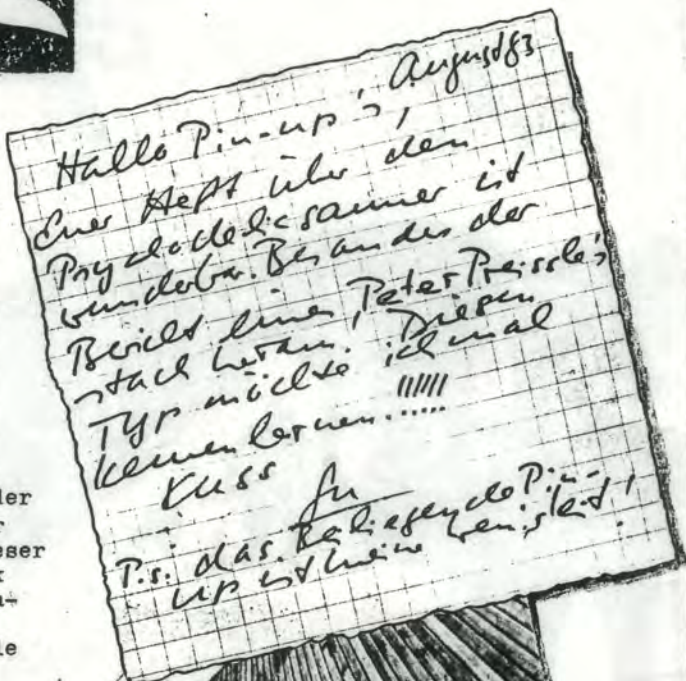 August 83
Hallo Pin-up's,
Euer Heft über den
Psychodelicsammer ist
wunderbar. Besonders der
Bericht eines, Peter Preissle's
stach heraus. Diesen
Typ möchte ich mal
kennen lernen.!!!!!!
Kuss
P.s. das Beiliegende Pin-
up ist meine Wenigkeit!
ler
r
eser
t
n-
le